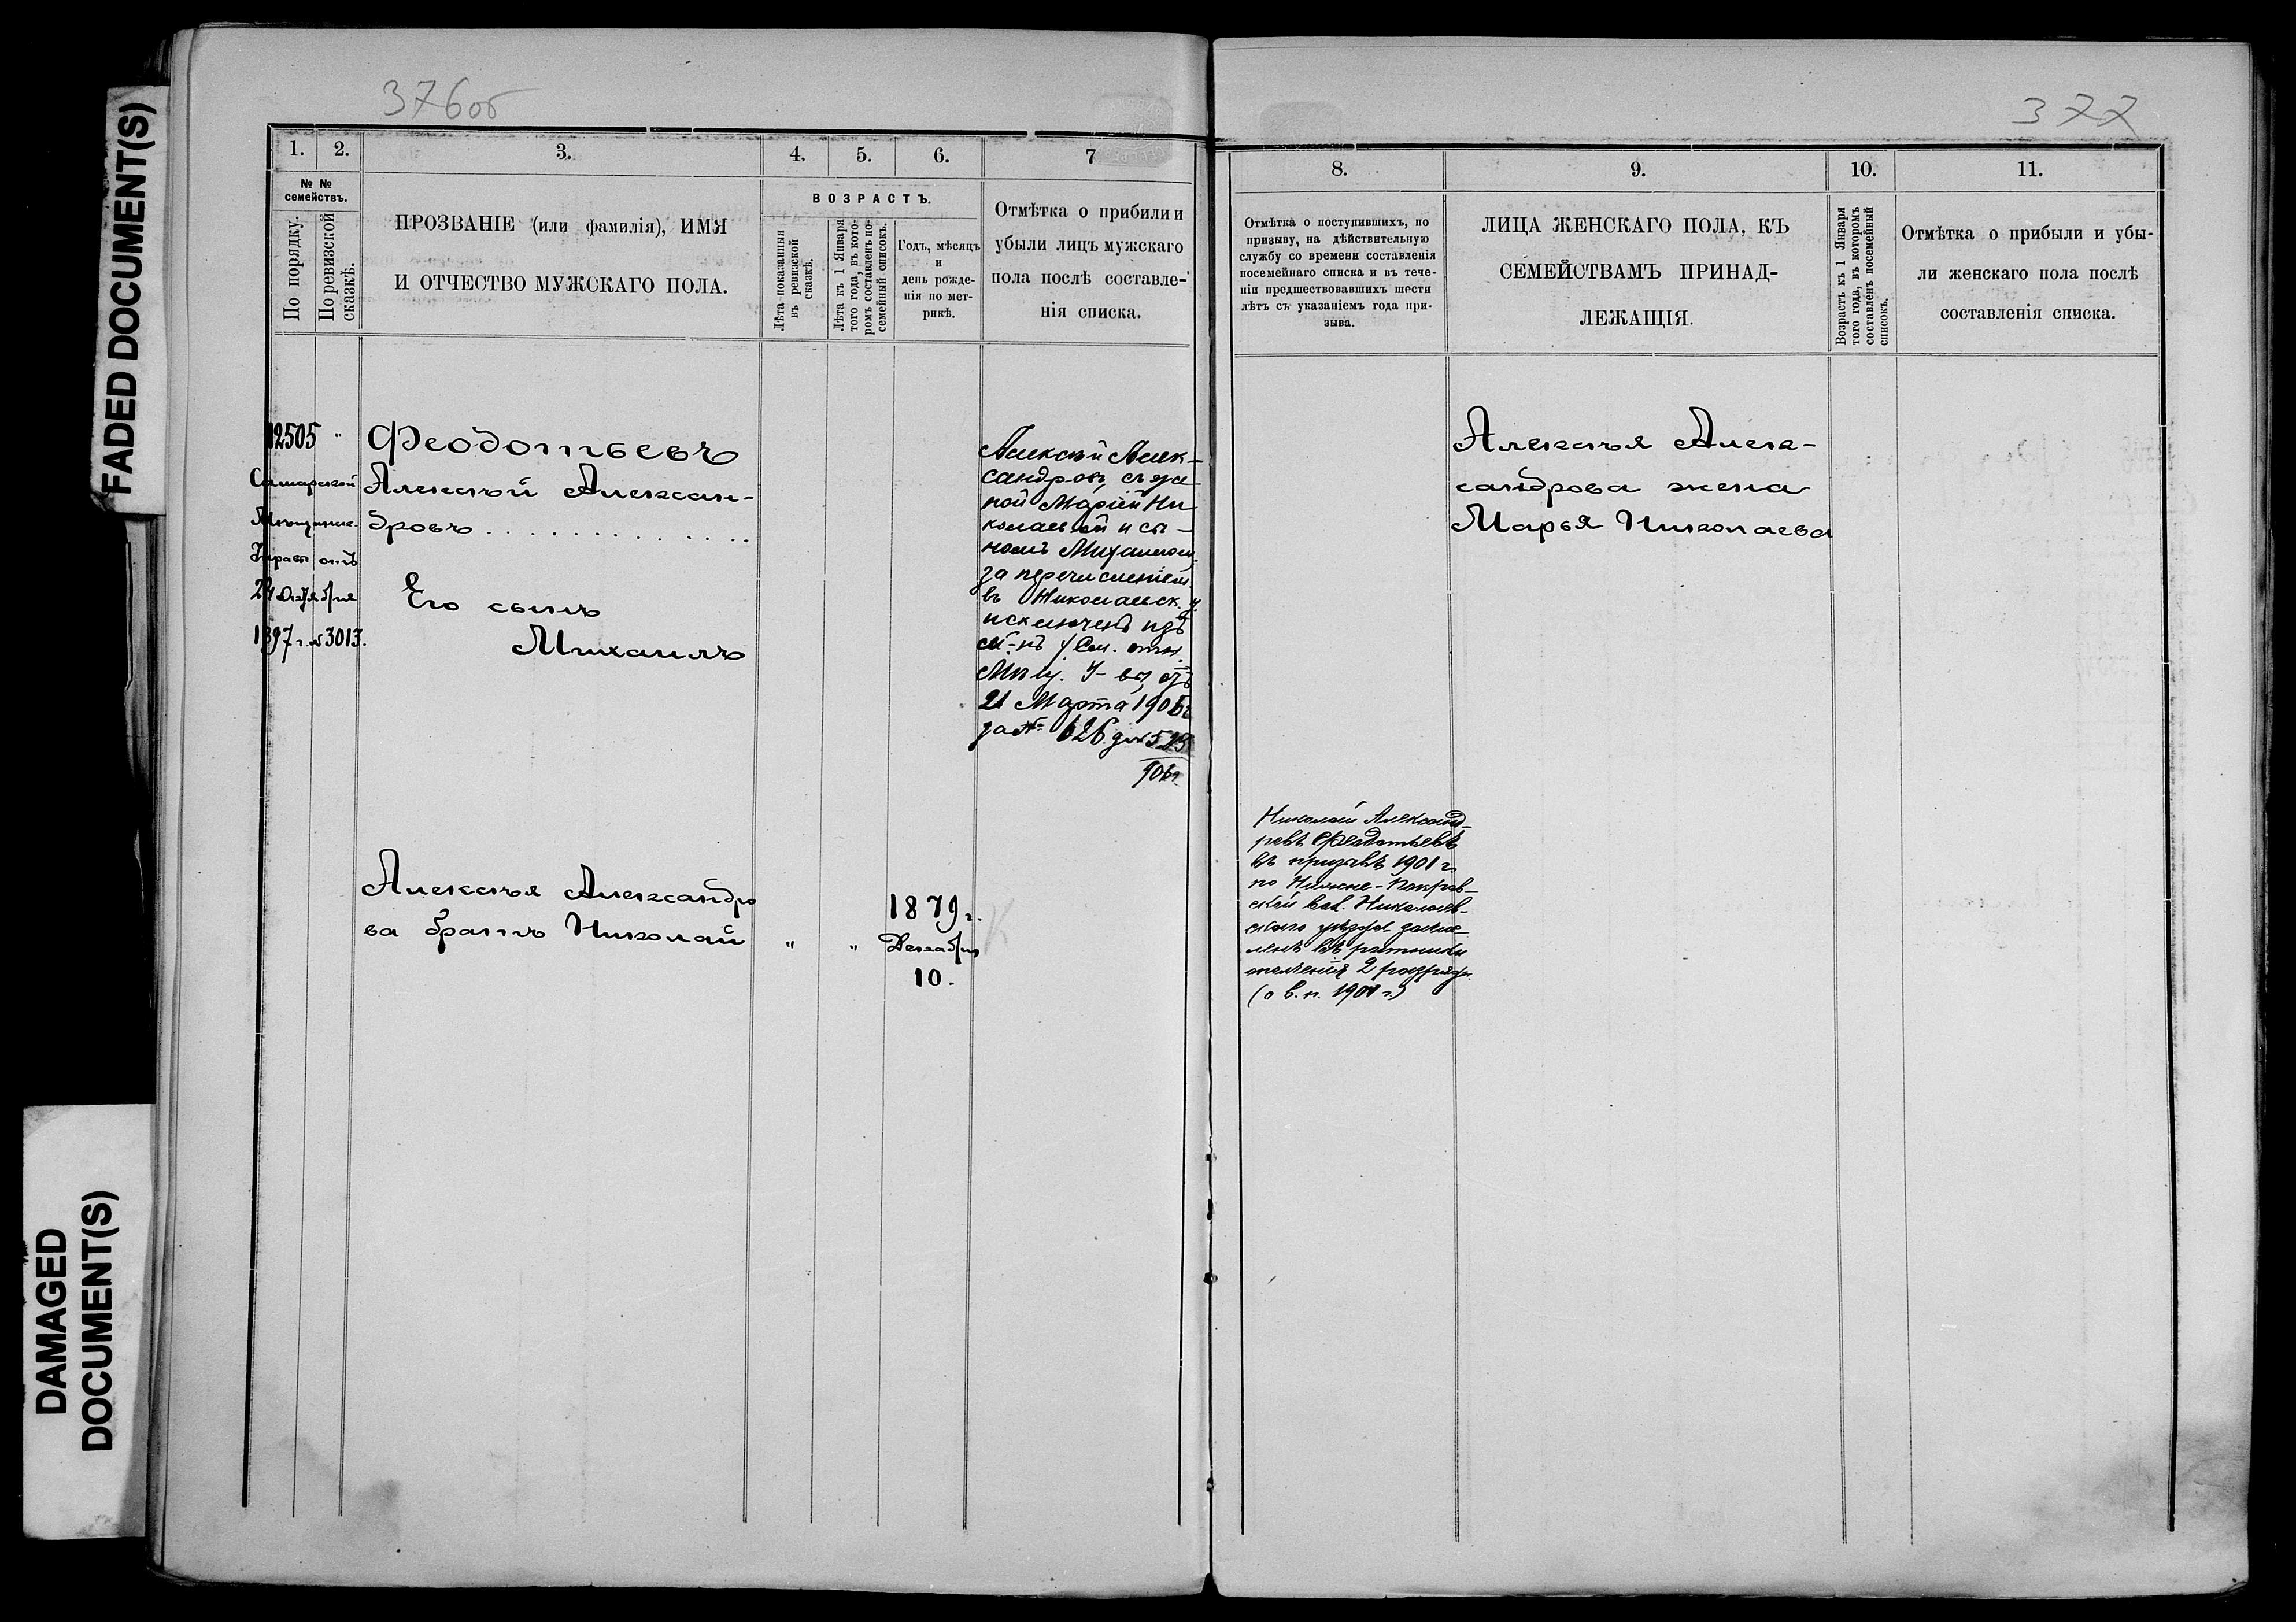 FADED DOCUMENT(S)
DAMAGED
DOCUMENT(S)
376об
1.
2.
3.
4.
5.
6.
7
№ №
семействъ.
По порядку.
По ревизской
сказкѣ.
ПРОЗВАНІЕ (или фамилія), ИМЯ
И ОТЧЕСТВО МУЖСКАГО ПОЛА.
ВОЗРАСТЪ.
Лѣта показанныя
въ ревизской
сказкѣ.
Лѣта къ 1 Января
того года, въ кото-
ромъ составленъ по-
семейный списокъ.
Годъ, мѣсяцъ
и
день рожде-
нія по мет-
рикѣ.
Отмѣтка о прибыли и
убыли лицъ мужскаго
пола послѣ составле-
нія списка.
12505 "
Самарской
Мѣщанск.
Управы отъ
24 Октября
1897 г. № 3013.
Феодотьевъ
Алексѣй Алексан-
дровъ
Его сынъ
Михаилъ
Алексѣй Алек-
сандровъ, съ же-
ной Маріей Ни-
колаевой и сы-
номъ Михаиломъ
за перечисленіем
въ Николаевск. у.
исключенъ изъ
сп-въ (См. отн.
Мѣщ. У-вы, отъ
21 Марта 1906 г.
за № 626 д. № 525
906 г.
Алексѣя Александро
ва братъ Николай
" "
1879 г.
Декабря
10.
377
8.
9.
10.
11.
Отмѣтка о поступившихъ, по
призыву, на дѣйствительную
службу со времени составленія
посемейнаго списка и въ тече-
ніи предшествовавшихъ шести
лѣтъ съ указаніемъ года при-
зыва.
ЛИЦА ЖЕНСКАГО ПОЛА, КЪ
СЕМЕЙСТВАМЪ ПРИНАД-
ЛЕЖАЩІЯ.
Возрастъ къ 1 Января
того года, въ которомъ
составленъ посемейный
списокъ.
Отмѣтка о прибыли и убы-
ли женскаго пола послѣ
составленія списка.
Алексѣя Алек-
сандрова жена
Марья Николаева
Николай Александ-
ровъ Феодотьевъ
въ призывѣ 1901 г.
по Нижне-Покров-
ской вол. Николаев-
скаго уѣзда зачис-
ленъ въ ратники
ополченія 2 разряда.
(о в. п. 1901 г.)